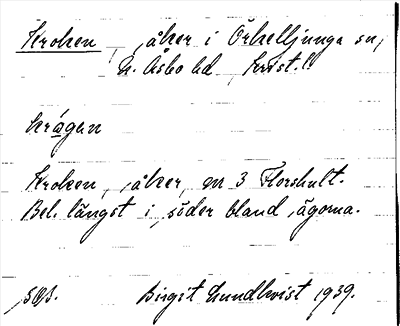 Kroken, åker i Örkelljunga sn,
N. Åsbo hd, Krist. l.
krågen
Kroken, åker, nr 3 Florshult.
Bel. längst i söder bland ägorna.
Birgit Lundkvist 1939.